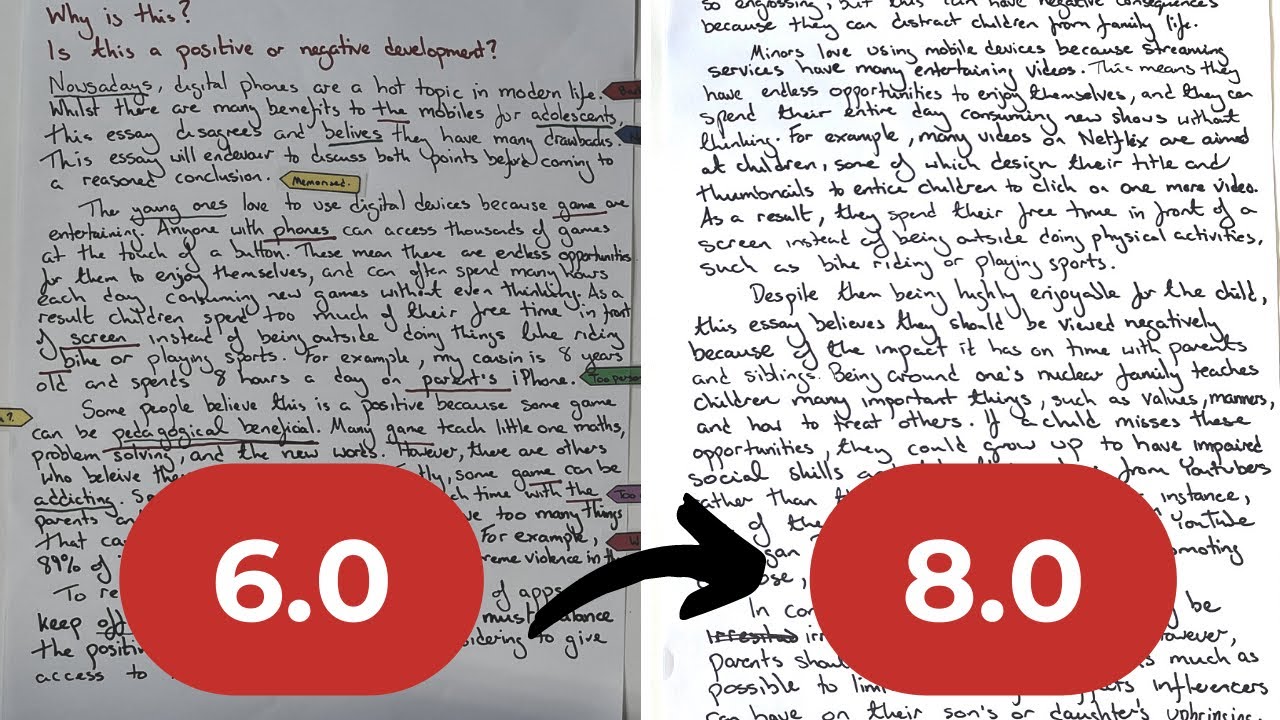 Why is this?
Is this a positive or negative development?
Nowsadays, digital phones are a hot topic in modern life.
Whilst there are many benefits to the mobiles for adolescents,
this essay disagrees and belives they have many drawbacks.
This essay will endevour to discuss both points before coming to
a reasoned conclusion. Memorised.
The young ones love to use digital devices because game are
entertaining. Anyone with phones can access thousands of games
at the touch of a button. These mean there are endless opportunities
for them to enjoy themselves, and can often spend many hours
each day consuming new games without even thinking. As a
result children spend too much of their free time in front
of screen instead of being outside doing things like riding
bike or playing sports. For example, my cousin is 8 years
old and spends 8 hours a day on parent's iPhone. Too
Some people believe this is a positive because some game
can be pedagogical beneficial. Many game teach little one maths,
problem solving, and the new words. However, there are others
who beleive some game can be
addicting. time with the
parents too many things
That For example,
89% of violence in
To of apps
keep must
the to give
access to
6.0
so engrossing, but this can have negative consequences
because they can distract children from family life.
Minors love using mobile devices because streaming
services have many entertaining videos. This means they
have endless opportunities to enjoy themselves, and they can
spend their entire day consuming new shows without
thinking. For example, many videos on Netflix are aimed
at children, some of which design their title and
thumbnails to entice children to click on one more video.
As a result, they spend their free time in front of a
screen instead of being outside doing physical activities,
such as bike riding or playing sports.
Despite them being highly enjoyable for the child,
this essay believes they should be viewed negatively
because of the impact it has on time with parents
and siblings. Being around one's nuclear family teaches
children many important things, such as values, manners,
and how to treat others. If a child misses these
opportunities, they could grow up to have impaired
social skills from Youtubers
rather than instance,
of the YouTube
In be
However,
parents much as
possible to influencers
can have on their son's or daughter's upbringing.
8.0